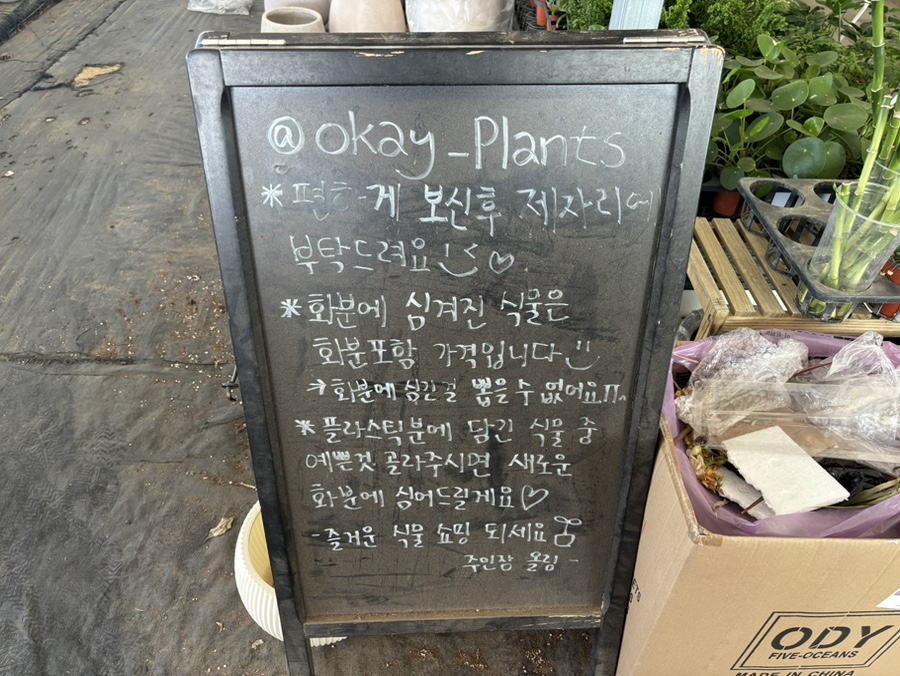 @okay_Plants
*편하게 보신후 제자리에
부탁드려요 :) ♡
*화분에 심겨진 식물은
화분포함 가격입니다 :)
*화분에 심긴걸 뽑을수 없어요ㅠ
*플라스틱분에 담긴 식물 중
예쁜것 골라주시면 새로운
화분에 심어드릴게요♡
-즐거운 식물 쇼핑 되세요
주인장 올림-
ODY
FIVE-OCEANS
MADE IN CHINA